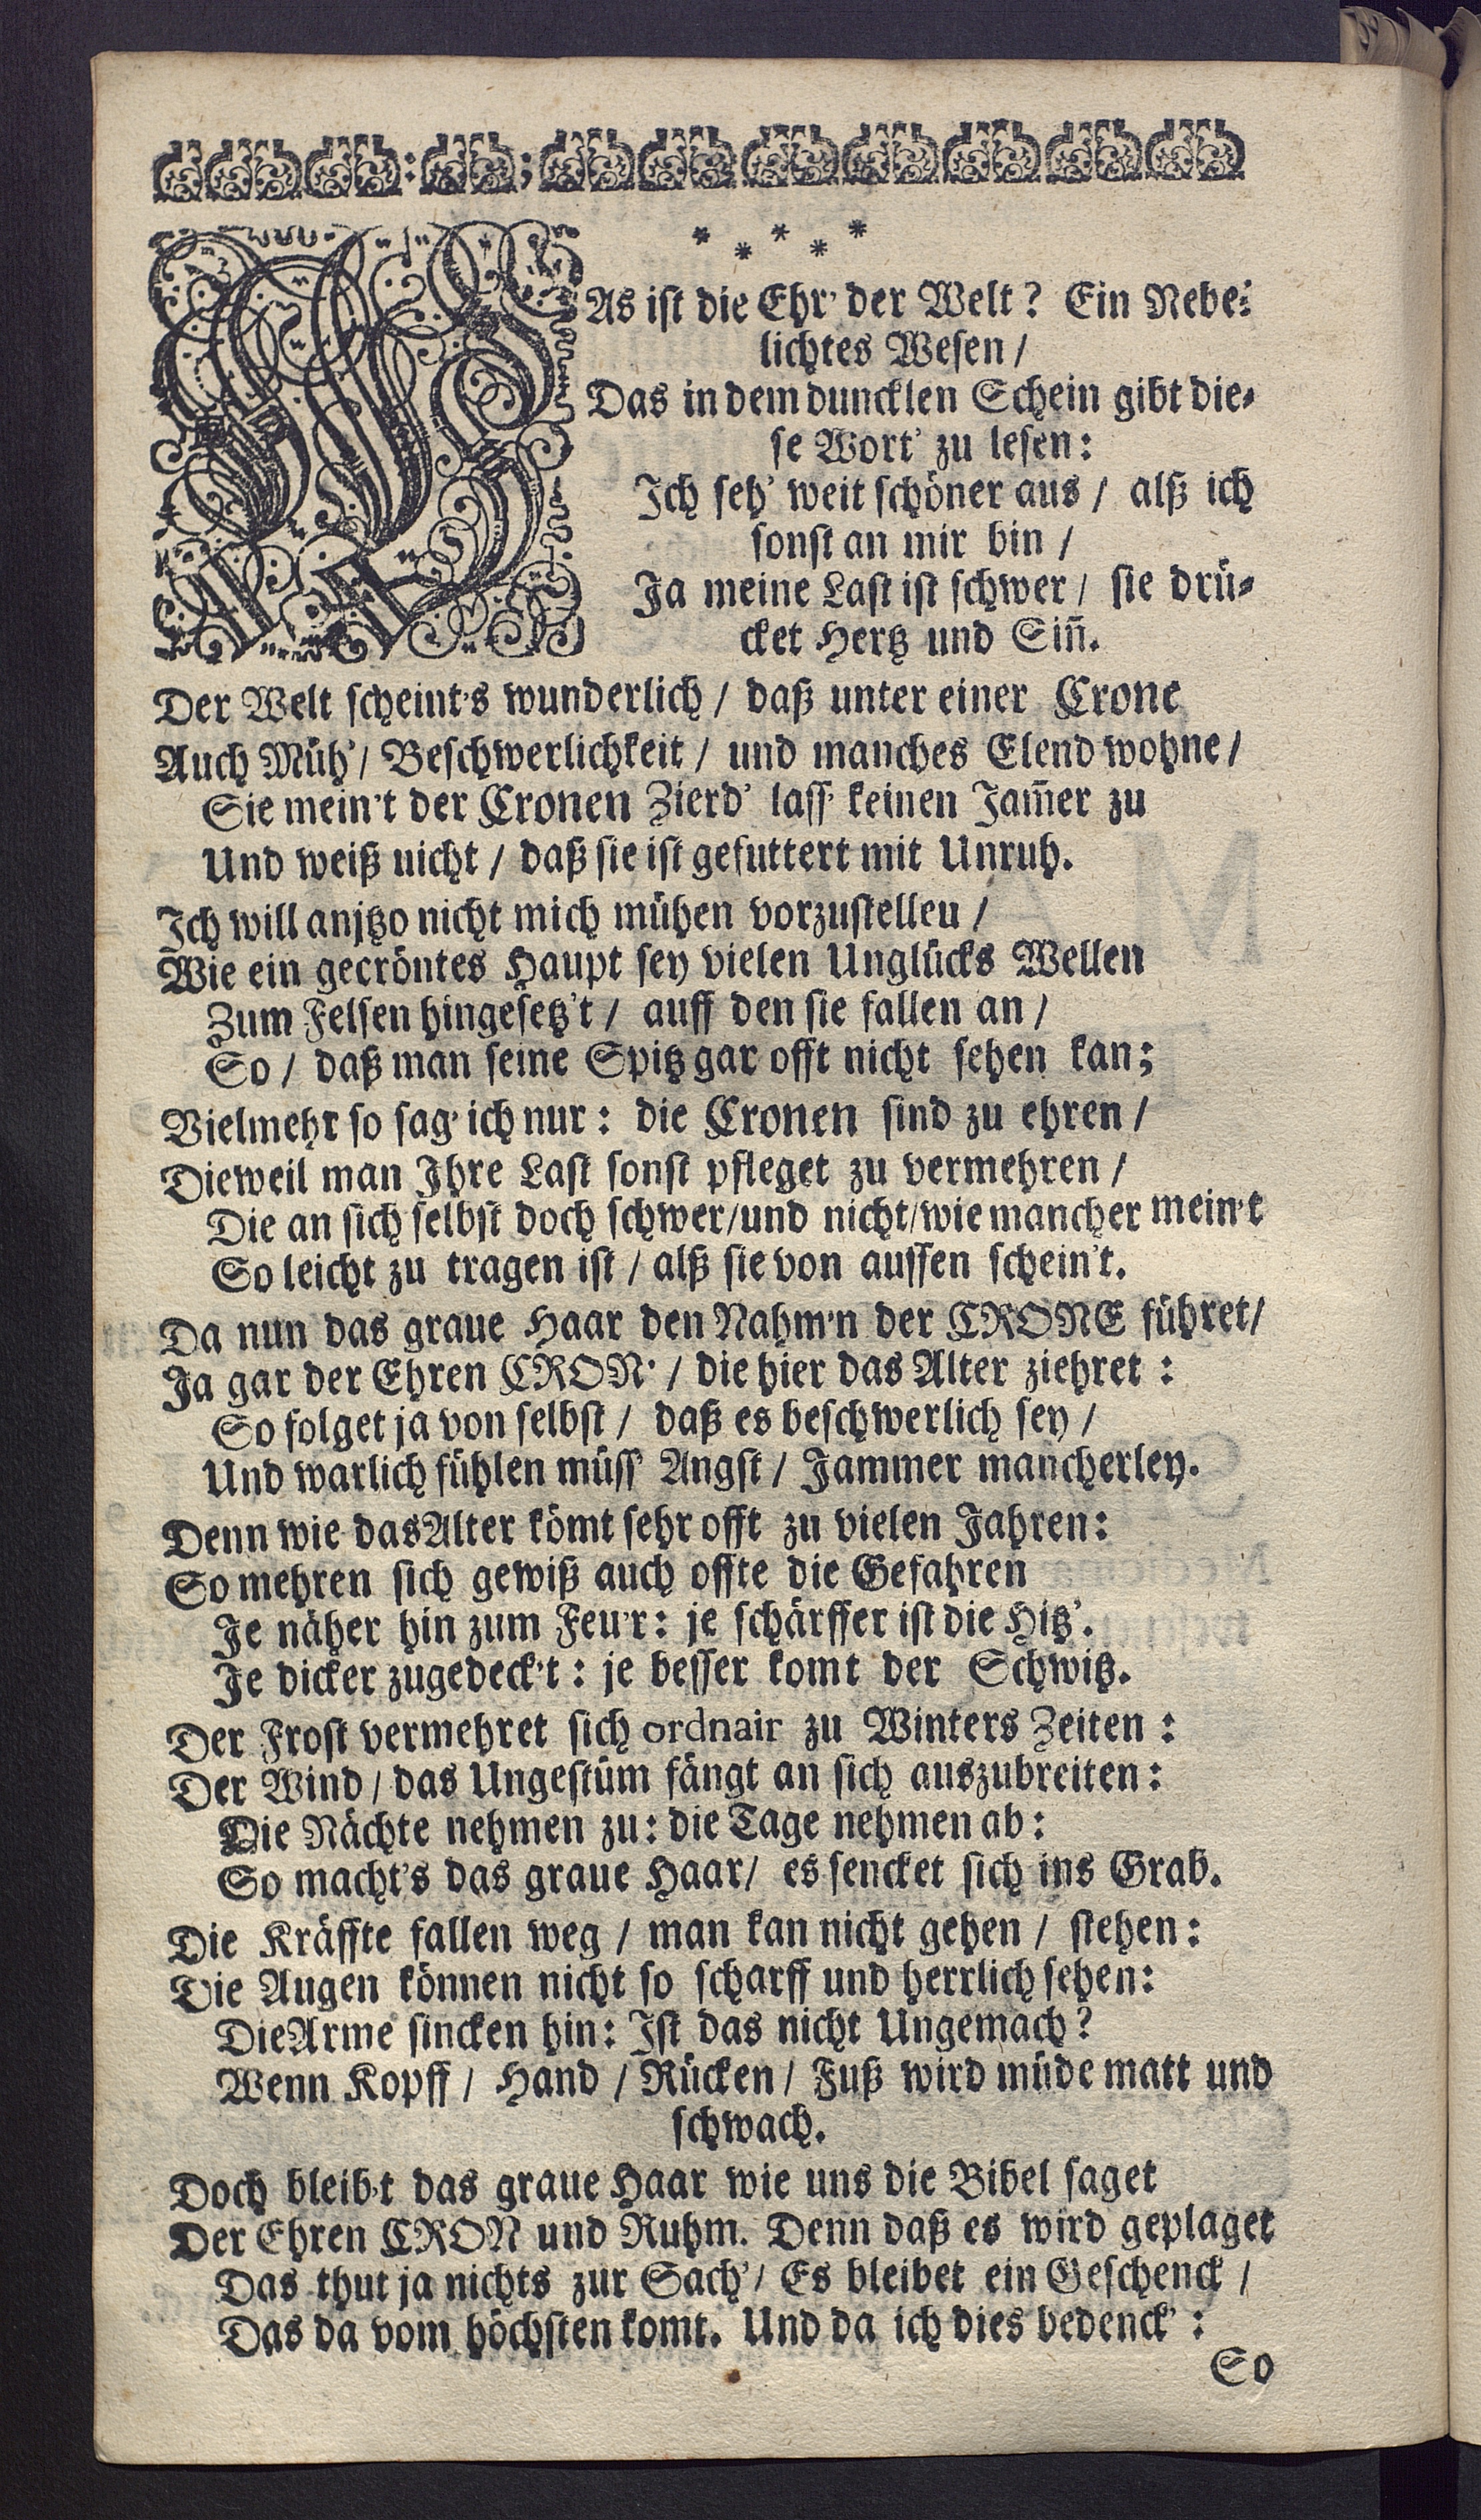 * * * * *
WAs ist die Ehr' der Welt? Ein Nebe-
lichtes Wesen /
Das in dem duncklen Schein gibt die-
se Wort' zu lesen:
Ich seh' weit schöner aus / alß ich
sonst an mir bin /
Ja meine Last ist schwer / sie drü-
cket Hertz und Siñ.
Der Welt scheint's wunderlich / daß unter einer Crone
Auch Müh' / Beschwerlichkeit / und manches Elend wohne /
Sie mein't der Cronen Zierd' lass' keinen Jam̃er zu
Und weiß nicht / daß sie ist gefuttert mit Unruh.
Ich will anjtzo nicht mich mühen vorzustellen /
Wie ein gecröntes Haupt sey vielen Unglücks Wellen
Zum Felsen hingesetz't / auff den sie fallen an /
So / daß man seine Spitz gar offt nicht sehen kan;
Vielmehr so sag' ich nur: die Cronen sind zu ehren /
Dieweil man Ihre Last sonst pfleget zu vermehren /
Die an sich selbst doch schwer/und nicht/wie mancher mein't
So leicht zu tragen ist / alß sie von aussen schein't.
Da nun das graue Haar den Nahm'n der CRONE führet/
Ja gar der Ehren CRON' / die hier das Alter ziehret:
So folget ja von selbst / daß es beschwerlich sey /
Und warlich fühlen müss' Angst / Jammer mancherley.
Denn wie das Alter kömt sehr offt zu vielen Jahren:
So mehren sich gewiß auch offte die Gefahren
Je näher hin zum Feu'r: je schärffer ist die Hitz'.
Je dicker zugedeck't: je besser komt der Schwitz.
Der Frost vermehret sich ordnair zu Winters Zeiten:
Der Wind / das Ungestüm fängt an sich auszubreiten:
Die Nächte nehmen zu: die Tage nehmen ab:
So macht's das graue Haar/ es sencket sich ins Grab.
Die Kräffte fallen weg / man kan nicht gehen / stehen:
Die Augen können nicht so scharff und herrlich sehen:
Die Arme sincken hin: Ist das nicht Ungemach?
Wenn Kopff / Hand / Rücken / Fuß wird müde matt und
schwach.
Doch bleib't das graue Haar wie uns die Bibel saget
Der Ehren CRON und Ruhm. Denn daß es wird geplaget
Das thut ja nichts zur Sach' / Es bleibet ein Geschenck /
Das da vom höchsten komt. Und da ich dies bedenck':
So